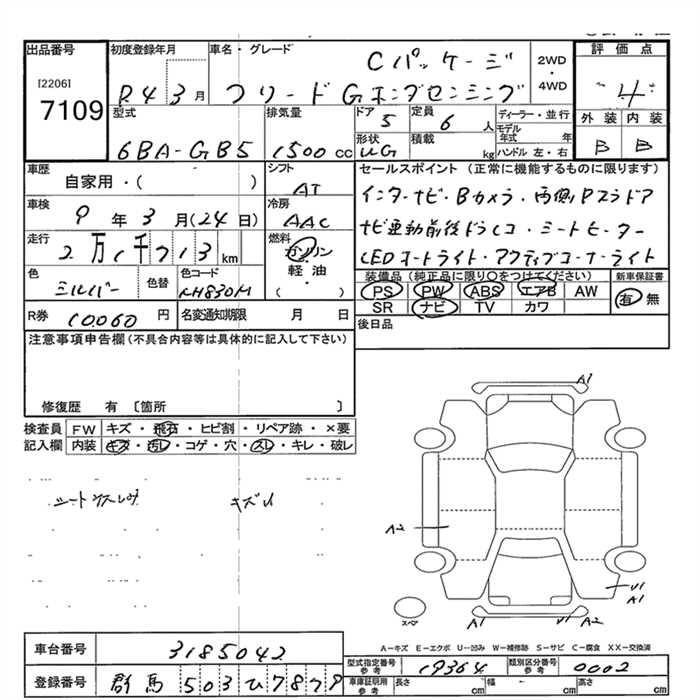 出品番号 初度登録年月 車名・グレード Cパッケージ 2WD・4WD 評価点
[2206] 7109 R4 3月 フリード Gホンダセンシング 4
型式 排気量 ドア 5 定員 6人 ディーラー・並行 外装 内装
6BA-GB5 1500cc 形状 UG 積載 kg モデル年式 年 ハンドル 左・右 B B
車歴 自家用・( ) シフト AT セールスポイント(正常に機能するものに限ります)
車検 9年3月(24日) 冷房 AAC インターナビ・Bカメラ・両側Pスラドア
走行 2万1千713km 燃料 ガソリン・軽油・( ) ナビ連動前後ドラレコ・シートヒーター
LEDオートライト・アクティブコーナーライト
色 シルバー 色替 色コード NH830M 装備品(純正品に限り○をつけてください) 新車保証書
PS PW ABS エアB AW 有・無
SR ナビ TV カワ
R券 10060円 名変通知期限 月 日 後日品
注意事項申告欄(不具合内容等は具体的に記入して下さい)
修復歴 有〔箇所 〕
検査員 FW キズ・飛石・ヒビ割・リペア跡・×要
記入欄 内装 キズ・汚レ・コゲ・穴・スレ・キレ・破レ
A1
キズ
A2
スペ
A1 U1 A2 U1 A1
A-キズ E-エクボ U-凹み W-補修跡 S-サビ C-腐食 XX-交換済
車台番号 3185042 型式指定番号 参考 19364 類別区分番号 参考 0002
登録番号 群馬 503ひ7879 車庫証明用 参考 長さ cm 幅 cm 高さ cm